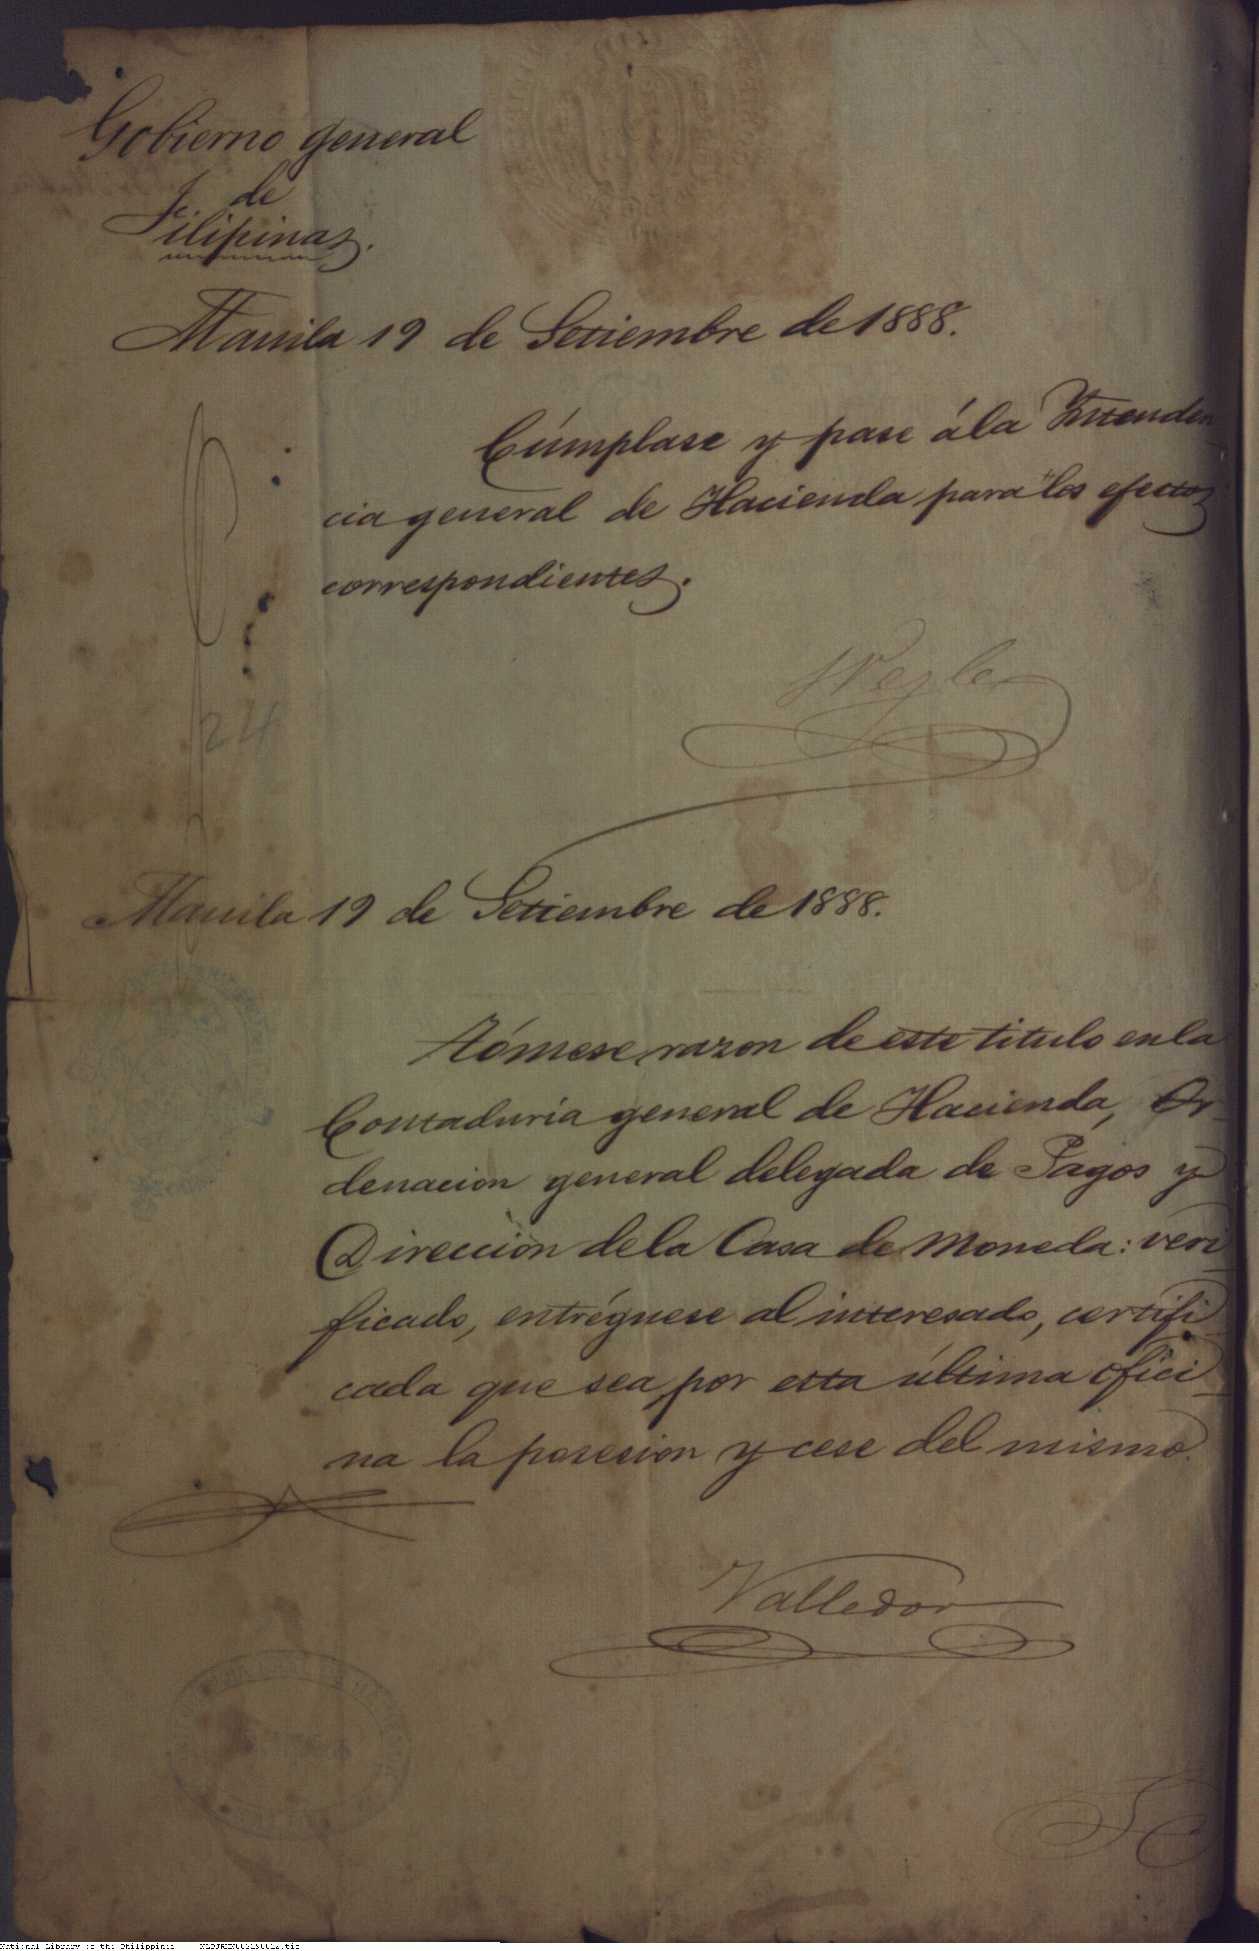 Gobierno general
de
Filipinas.
Manila 19 de Setiembre de 1888.
Cúmplase y pase á la Intenden
cia general de Hacienda para los efectos
correspondientes.
24
Manila 19 de Setiembre de 1888.
Tómese razon de este titulo en la
Contaduría general de Hacienda, Or-
denacion general delegada de Pagos y
Direccion de la Casa de Moneda: veri
ficado, entréguese al interesado, certifi
cada que sea por esta última ofici
na la posesion y cese del mismo.
Valledor
National Library of the Philippines